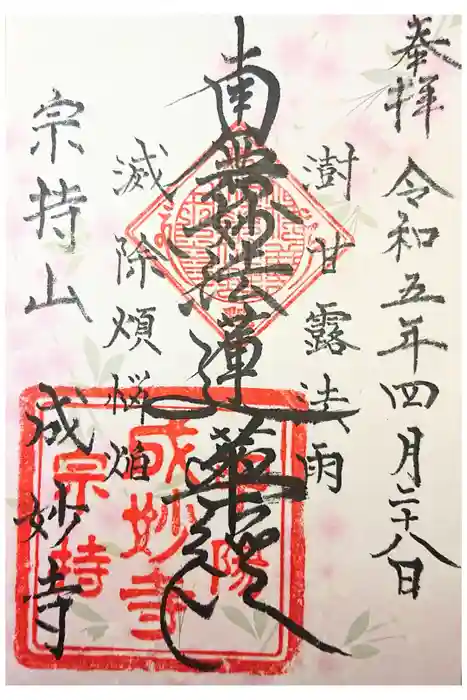 奉拝 令和五年四月二十八日
樹甘露法雨
南無妙法蓮華経
滅除煩悩焔
宗持山 成妙寺
成妙寺
宗持